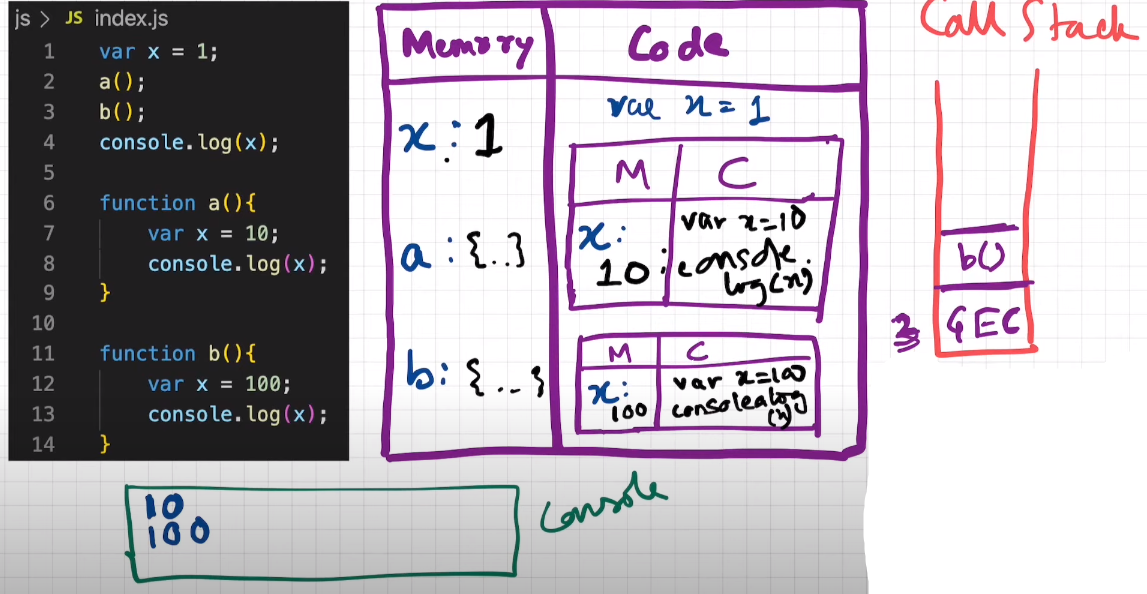 js > JS index.js
1 var x = 1;
2 a();
3 b();
4 console.log(x);
5
6 function a(){
7 var x = 10;
8 console.log(x);
9 }
10
11 function b(){
12 var x = 100;
13 console.log(x);
14 }
Memory Code
x : 1
a : {..}
b: {...}
var x = 1
M C
x:
10
var x=10
console.
log(x)
M C
x:
100
var x=100
consolealog
(x)
Call Stack
b()
GEC
10
100
Console